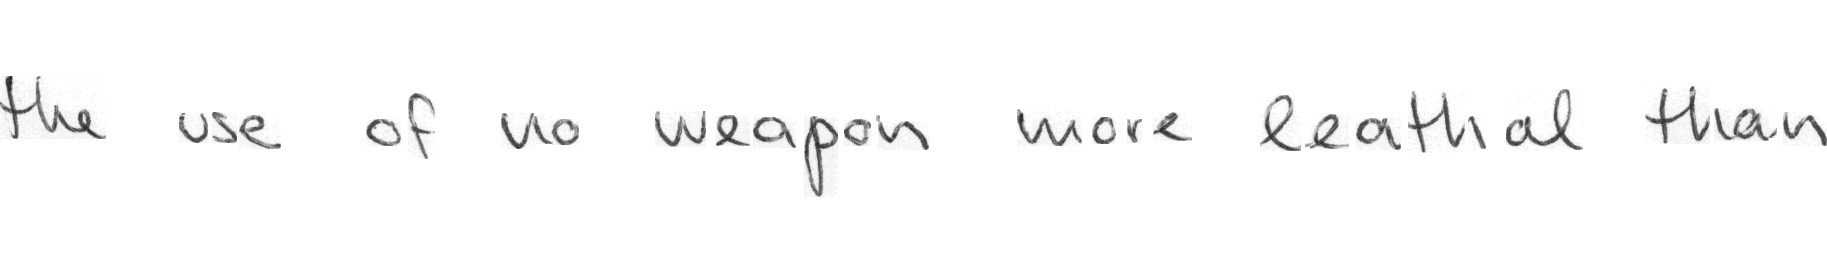 the use of no weapon more leathal than